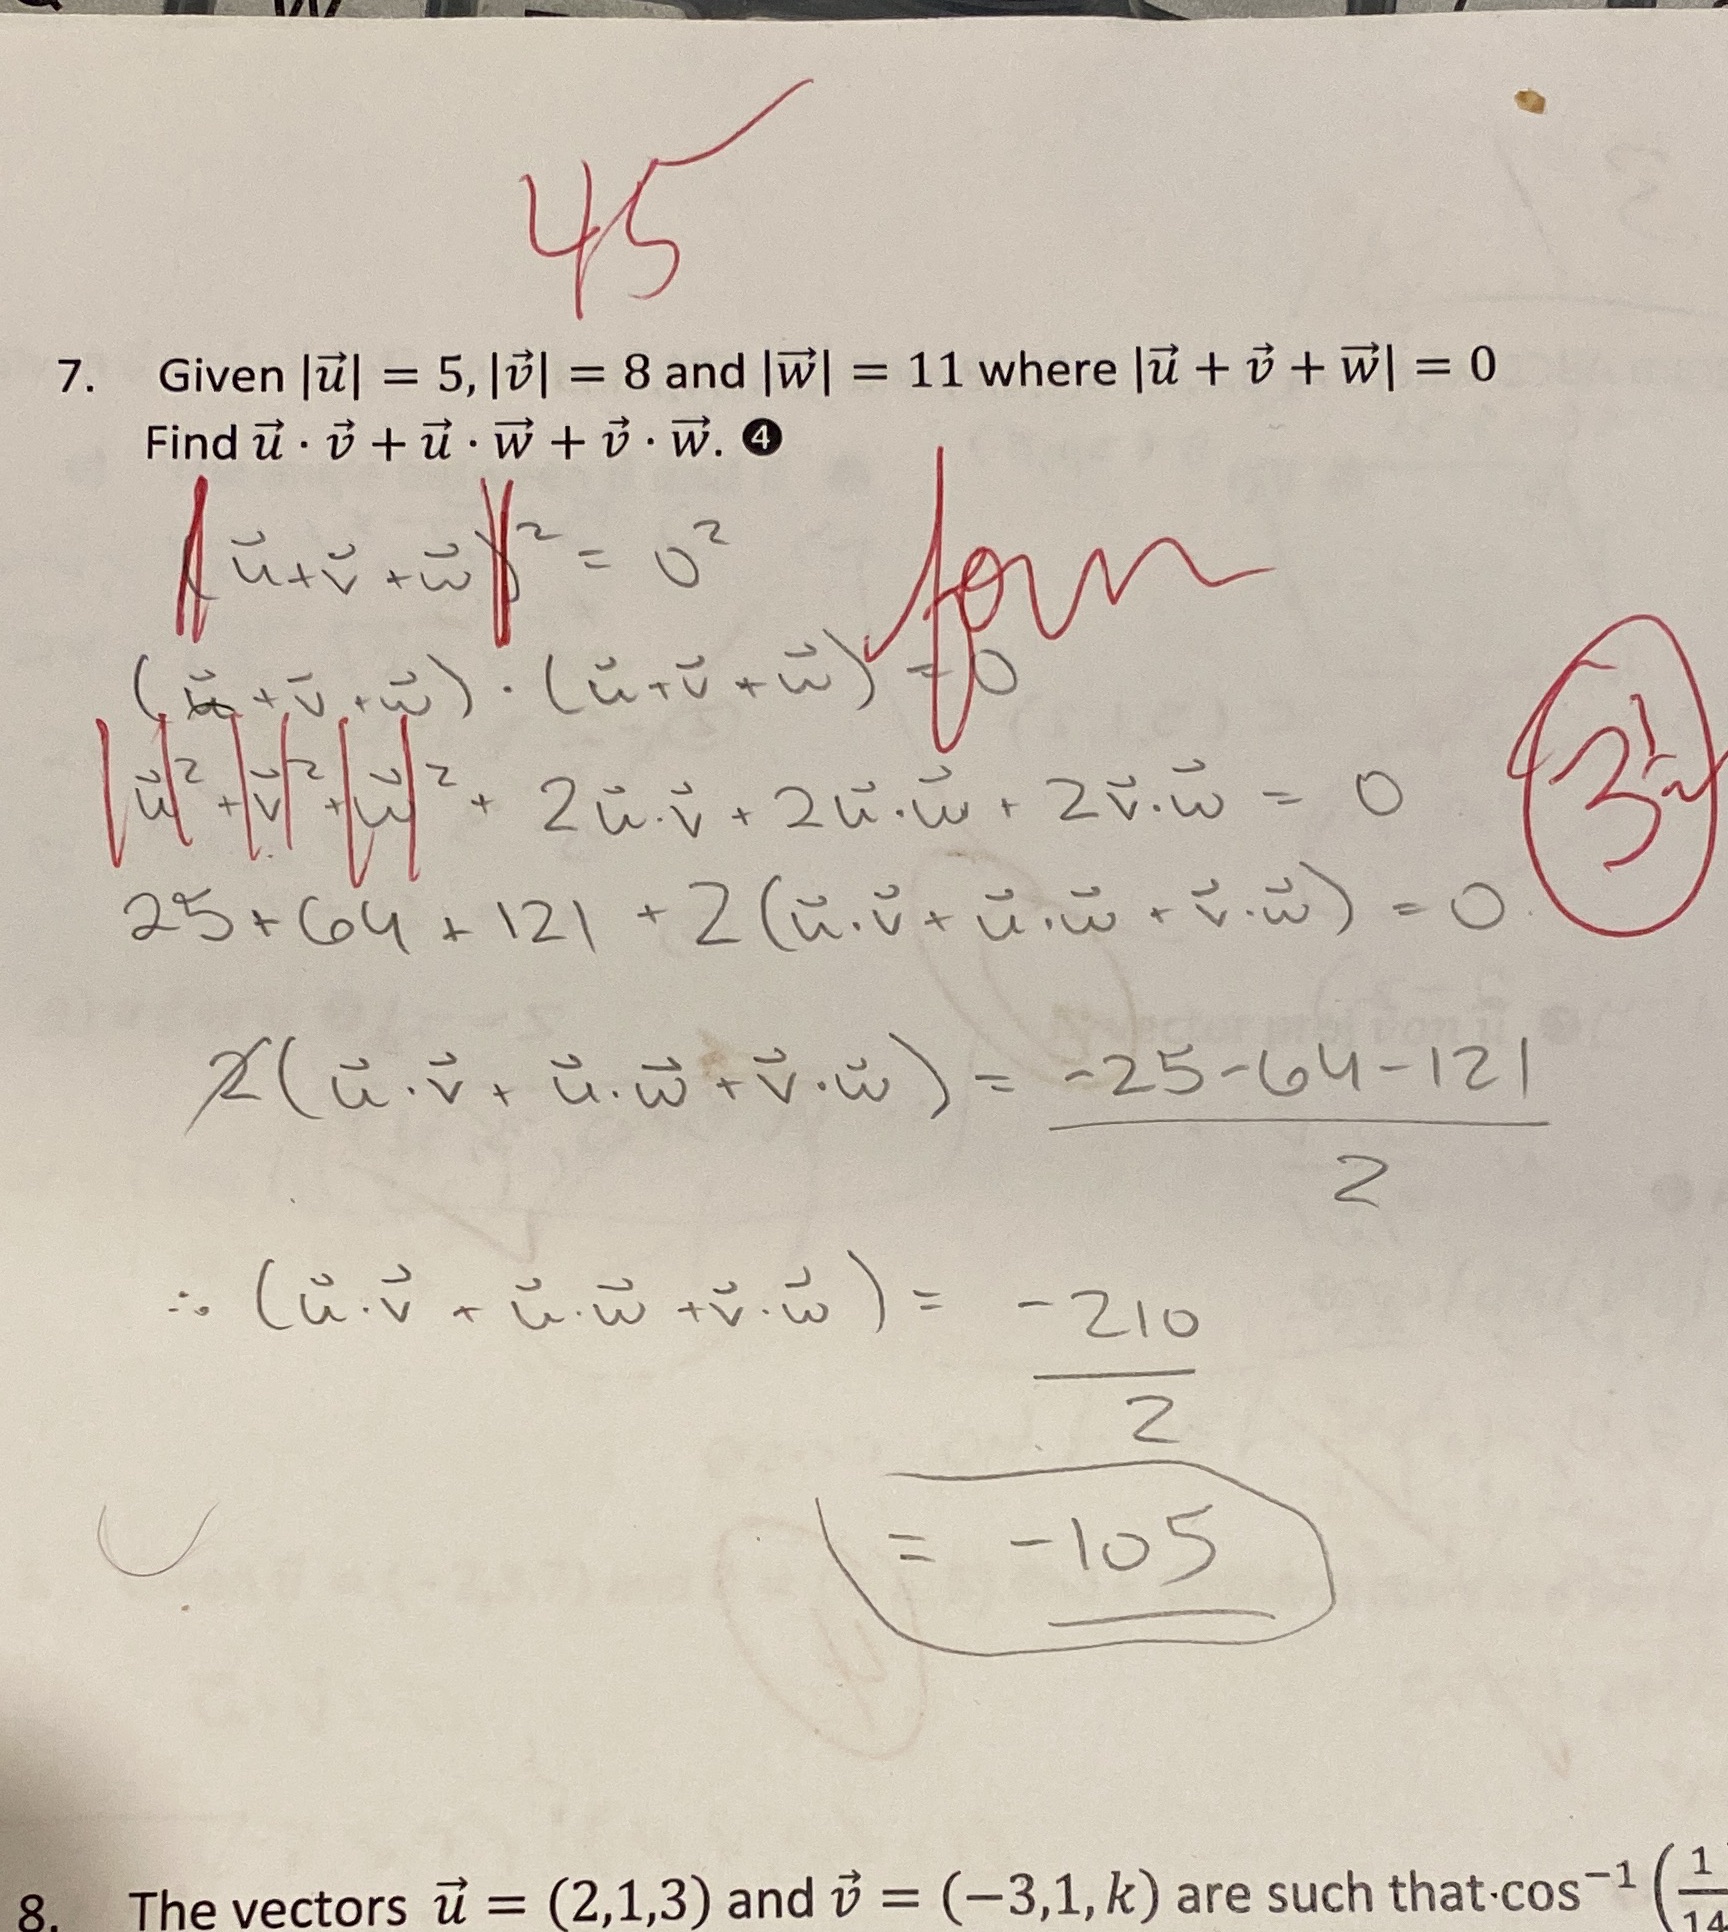 45
7. Given |u⃗| = 5, |v⃗| = 8 and |w⃗| = 11 where |u⃗ + v⃗ + w⃗| = 0
Find u⃗ · v⃗ + u⃗ · w⃗ + v⃗ · w⃗. ❹
|u⃗ + v⃗ + w⃗|² = 0²
form
(u⃗ + v⃗ + w⃗) · (u⃗ + v⃗ + w⃗) = 0
|u⃗|² + |v⃗|² + |w⃗|² + 2u⃗·v⃗ + 2u⃗·w⃗ + 2v⃗·w⃗ = 0
3½
25 + 64 + 121 + 2(u⃗·v⃗ + u⃗·w⃗ + v⃗·w⃗) = 0
2(u⃗·v⃗ + u⃗·w⃗ + v⃗·w⃗) = -25-64-121
2
∴ (u⃗·v⃗ + u⃗·w⃗ + v⃗·w⃗) = -210
2
= -105
8. The vectors u⃗ = (2,1,3) and v⃗ = (−3,1, k) are such that cos⁻¹ (1
14